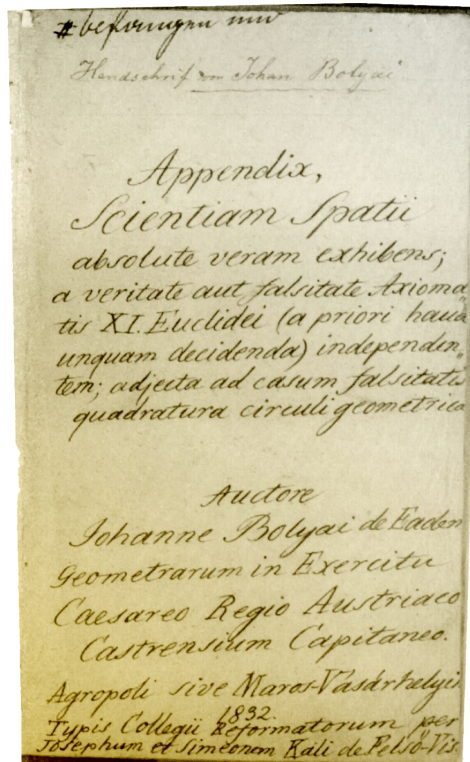 Handschrif von Johan Bolyai
Appendix,
Scientiam Spatii
absolute veram exhibens;
a veritate aut falsitate Axioma„
tis XI. Euclidei (a priori haud
unquam decidenda) independen„
tem; adjecta ad casum falsitatis
quadratura circuli geometrica
Auctore
Johanne Bolyai de Eadem
Geometrarum in Exercitu
Caesareo Regio Austriaco
Castrensium Capitaneo.
Agropoli sive Maros-Vásárhelyin
1832.
Typis Collegii Reformatorum per
Josephum et Simeonem Kali de Felsö-Vis